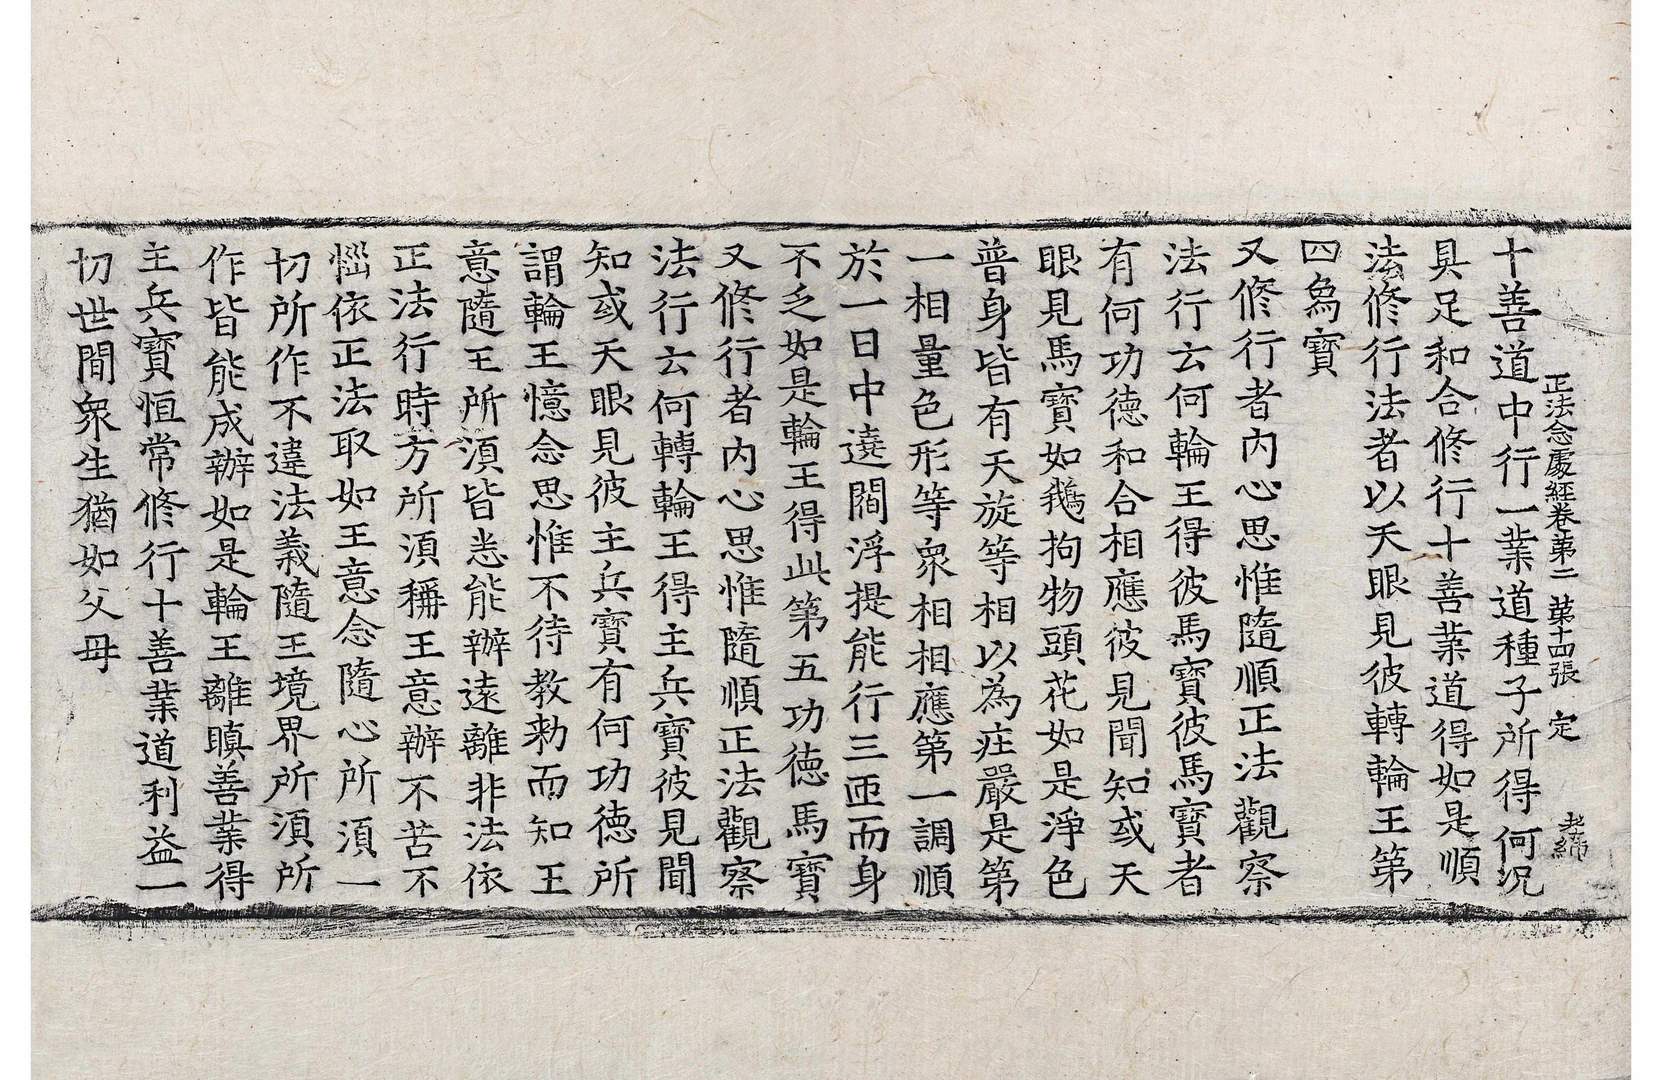 正法念處經卷第二 第十四張 定
十善道中行一業道種子所得何況
具足和合修行十善業道得如是順
法修行法者以天眼見彼轉輪王第
四爲寶
又修行者內心思惟隨順正法觀察
法行云何輪王得彼馬寶彼馬寶者
有何功德和合相應彼見聞知或天
眼見馬寶如鵝拘物頭花如是淨色
普身皆有天旋等相以為莊嚴是第
一相量色形等衆相相應第一調順
於一日中遶閻浮提能行三匝而身
不乏如是輪王得此第五功德馬寶
又修行者內心思惟隨順正法觀察
法行云何轉輪王得主兵寶彼見聞
知或天眼見彼主兵寶有何功德所
謂輪王憶念思惟不待教勑而知王
意隨王所湏皆悉能辦遠離非法依
正法行時方所湏稱王意辦不苦不
惱依正法取如王意念隨心所湏一
切所作不違法義隨王境界所湏所
作皆能成辦如是輪王離瞋善業得
主兵寶恒常修行十善業道利益一
切世間衆生猶如父母